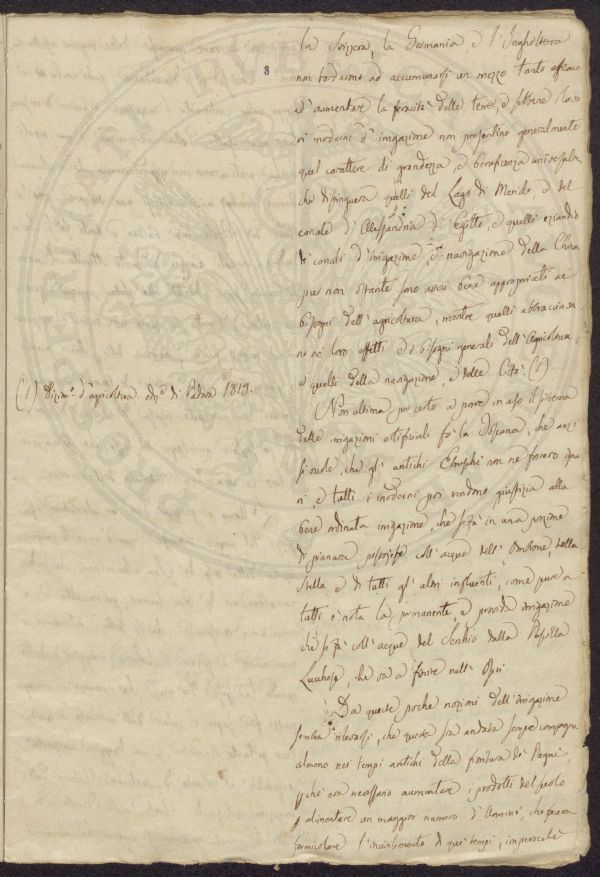 8
la Svizzera, la Germania, e l'Inghilterra
non tardarono ad accumunarsi un mezzo tanto efficace
ad aumentare la feracità delle terre, e sebbene i lavo
ri moderni d'irrigazione non presentino generalmente
quel carattere di grandezza, e beneficenza universale,
che distinguera quelli del Lago di Meride, e del
canale d'Alessandria d'Egitto, e quelli eziandio
de' canali d'irrigazione, e di navigazione della China
pur non ostante sono assai bene appropriati ai
bisogni dell'agricoltura, mentre quelli abbracciava
no ne' loro effetti ed i bisogni generali dell'Agricoltura,
e quelli della navigazione, e delle Città (1).
(1) Dizion.° d'agricoltura ediz.e di Padova 1819.
Non ultima per certo a porre in uso il sistema
delle irrigazioni artificiali fu la Toscana; che anzi
si vuole, che gl'antichi Etruschi non ne fossero igna
ri, e tutti i moderni poi rendono giustizia alla
bene ordinata irrigazione, che si fa in una porzione
di pianura pistojese coll'acque dell'Ombrone, della
Stella e di tutti gl'altri influenti, come pure a
tutti è nota la permanente, e provida irrigazione
che si fa coll'acque del Serchio dalla
Lucchese, che va a finire nell'
Da queste poche nozioni dell'irrigazione
sembra rilevarsi, che questa sia andata sempre compagna
almeno nei tempi antichi della floridezza de' Regni,
era necessario aumentare i prodotti del suolo
alimentare un maggior numero d'Uomini, che faceva
formicolare l'incivilimento di quei tempi; imperocchè